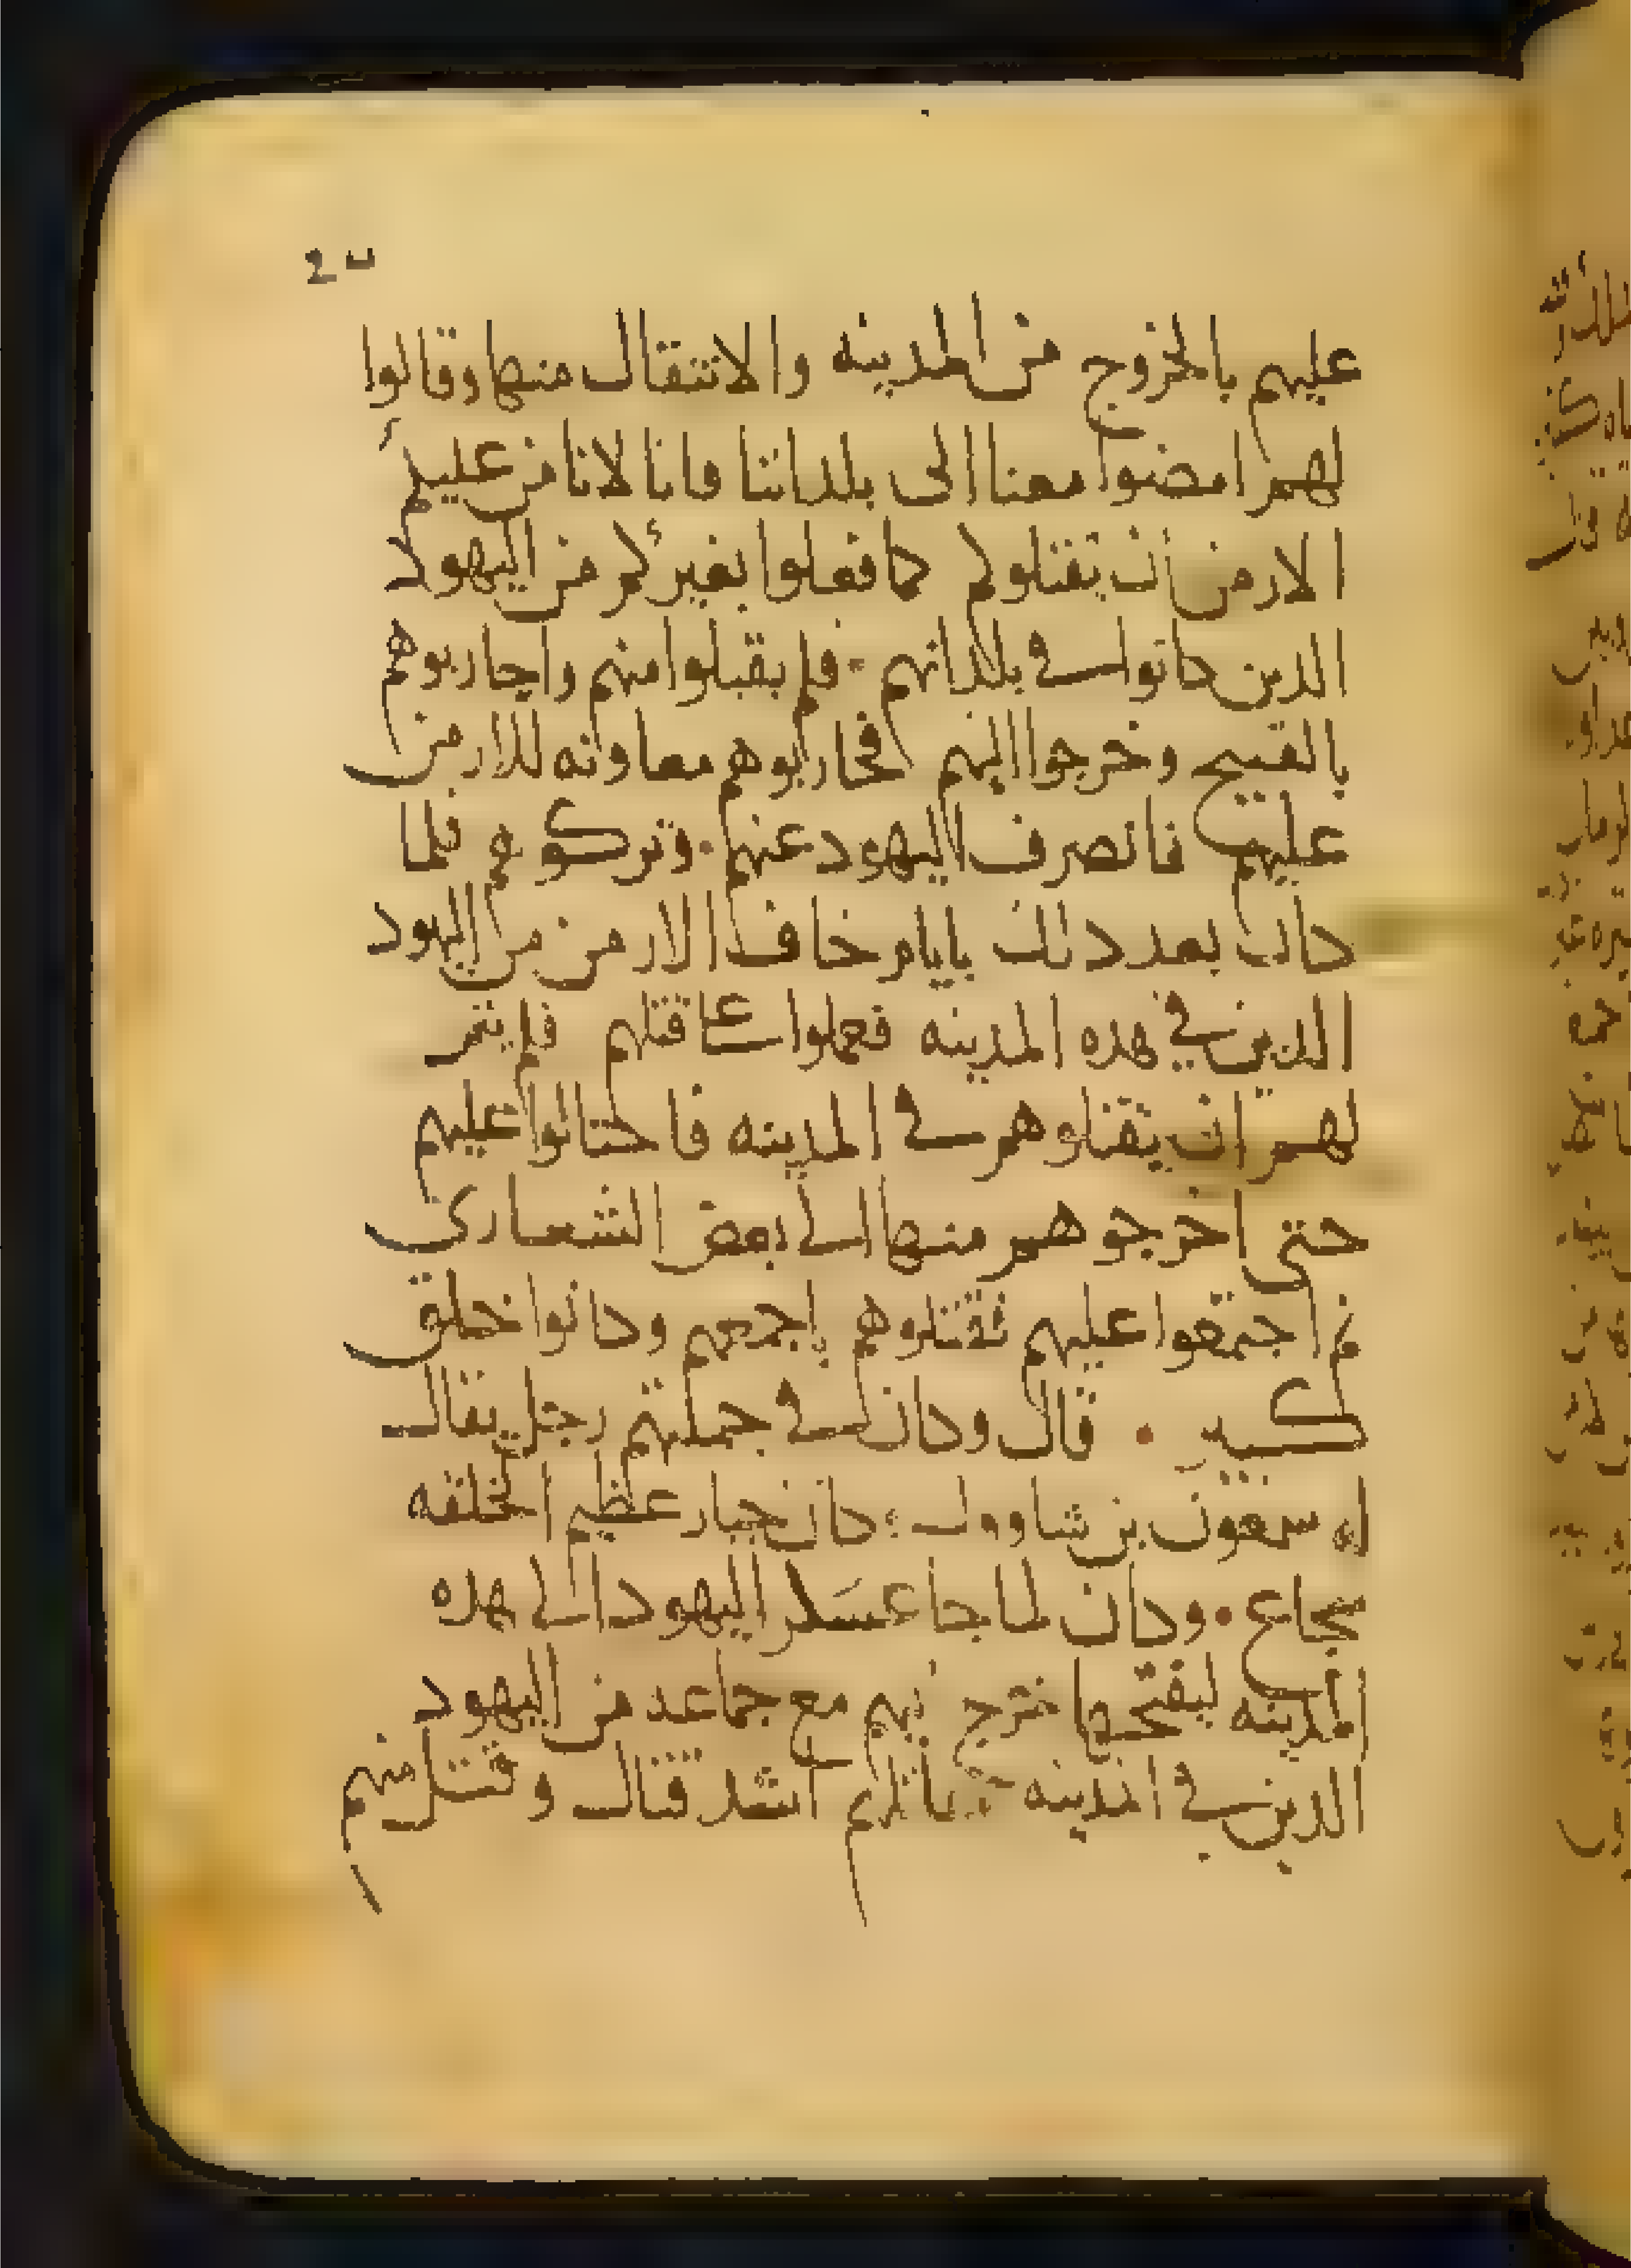 عليهم بالخروج من المدينه والانتقال منها وقالوا
لهم امضوا معنا الى بلداننا فانا لانامن عليكم
الارمن أن يقتلوكم كما فعلوا بغيركم من اليهود
الدين كانوا في بلدانهم . فلم يقبلوا منهم واجابوهم
بالقبيح وخرجوا اليهم فحاربوهم معاونه للارمن
عليهم فانصرف اليهود عنهم . وتركوهم فلما
كان بعد دلك بايام خاف الارمن من اليهود
الدين في هده المدينه فعملوا على قتلهم فلم يتم
لهم ان يقتلوهم في المدينه فاحتالوا عليهم
حتى اخرجوهم منها الى بعض الشعاري
ثم اجتمعوا عليهم فقتلوهم باجمعهم وكانوا خلق
كتير . قال وكان في جملتهم رجل يقال
له سمعون بن شاوول ؛ كان جبار عظيم الخلقه
شجاع . وكان لما جا عسكر اليهود الى هده
المدينه ليفتحها خرج اليهم مع جماعه من اليهود
الدين في المدينه اشد قتال وقتل منهم